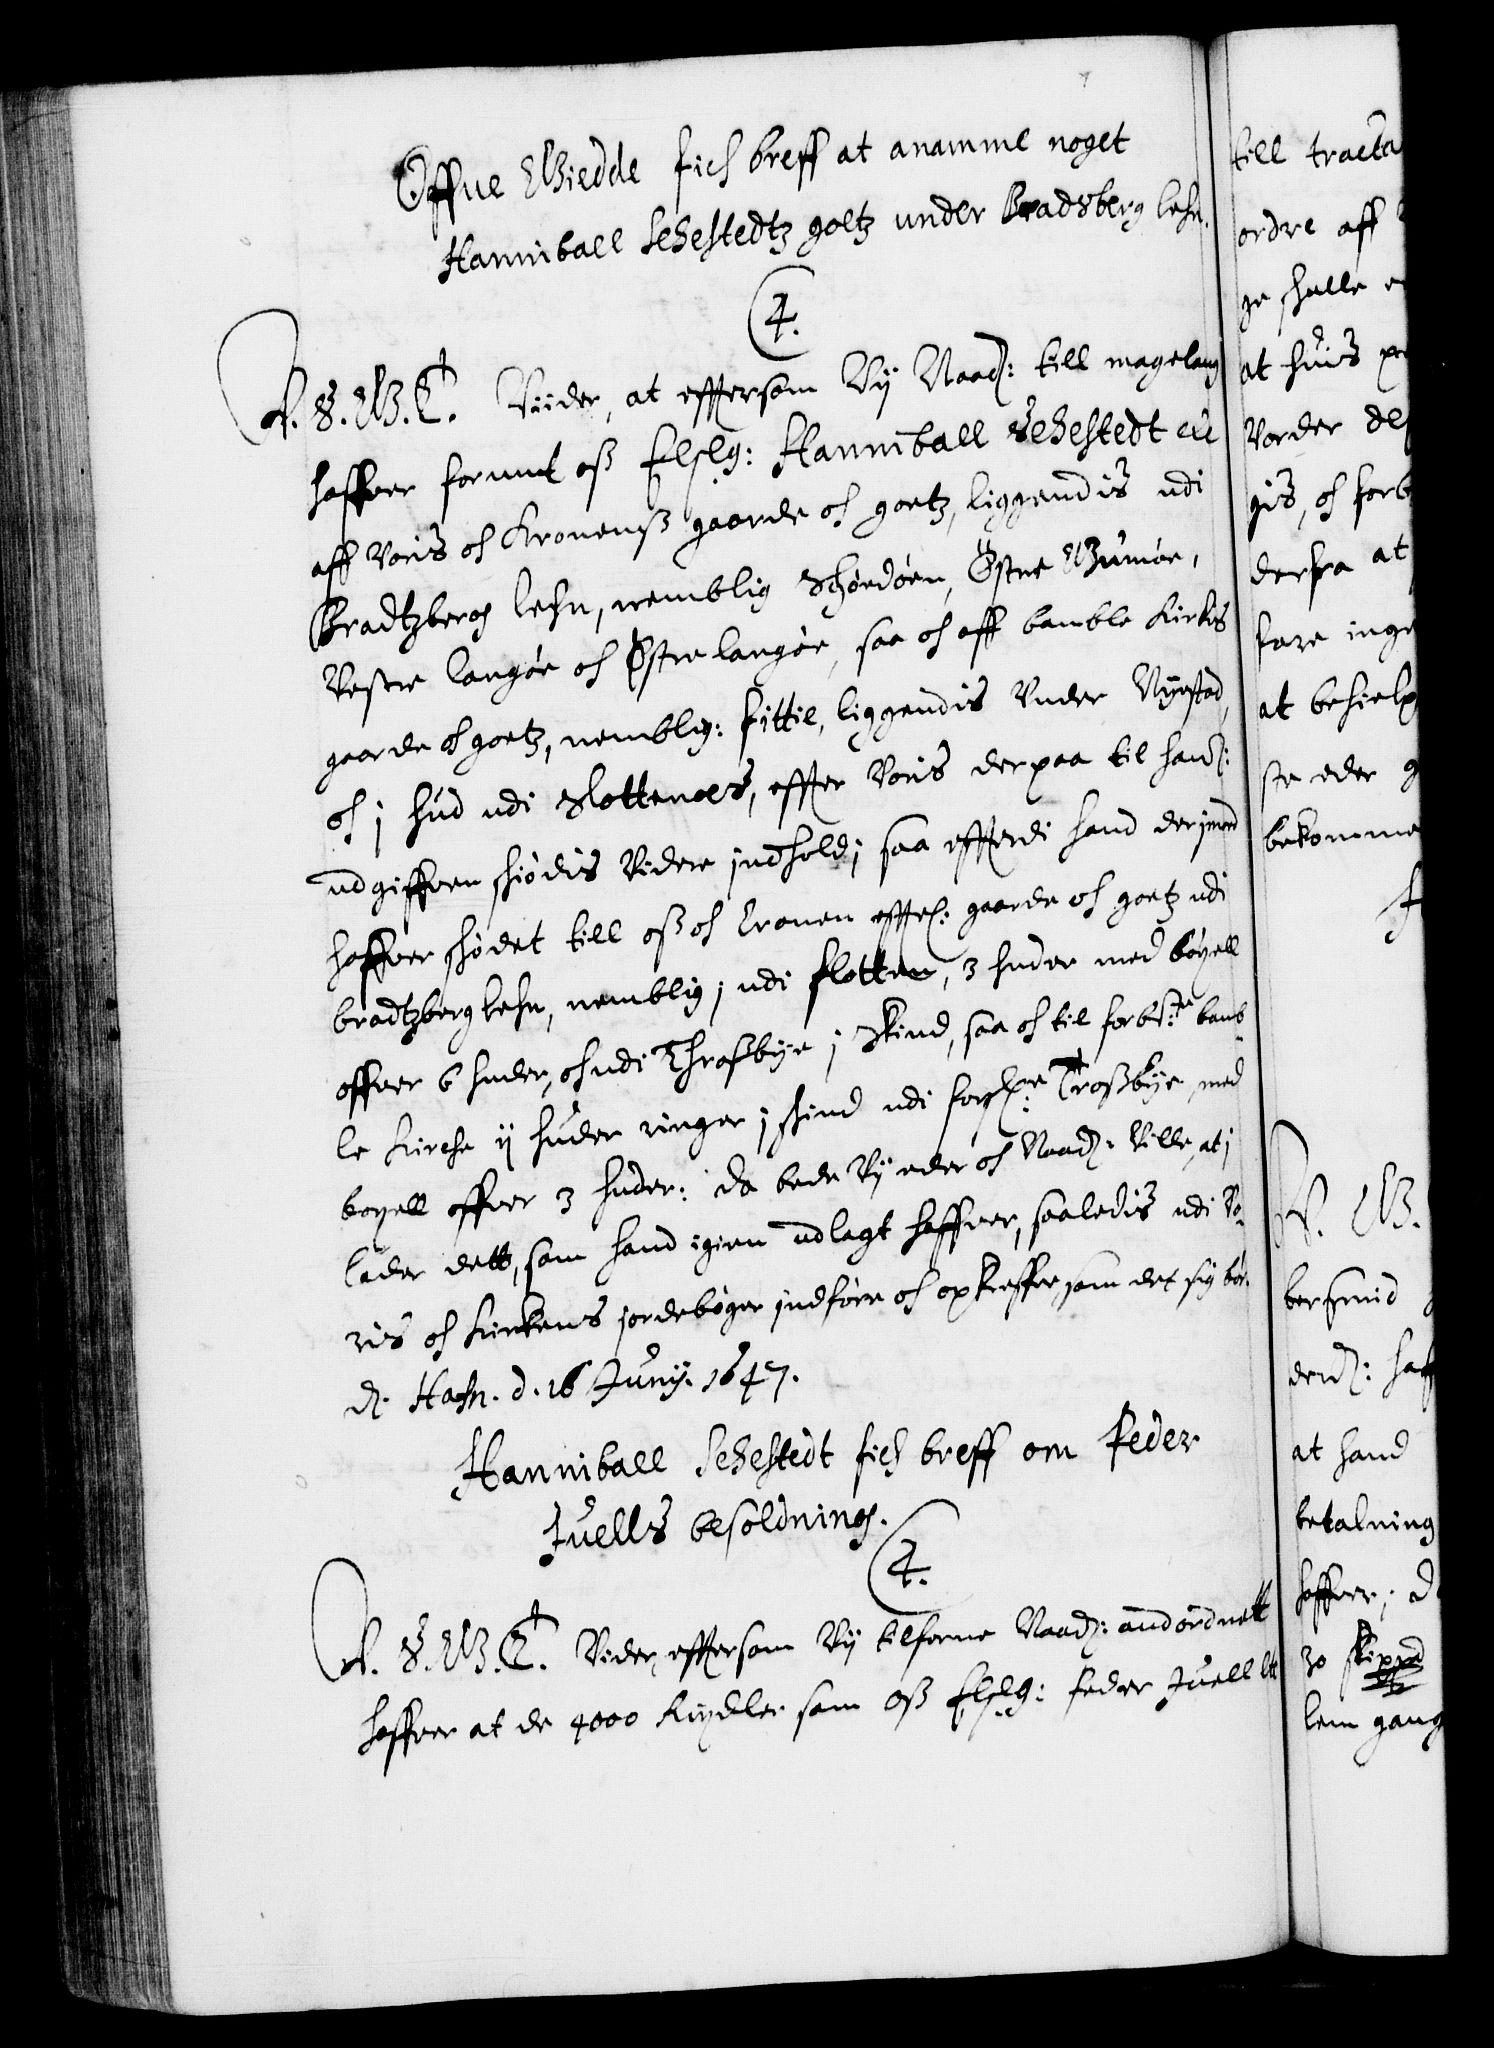 Offue Wiedde fich breff at anamme noget
Hanniball Sehestedtz goetz under Bradsberg lehn.
4.
C. 4. W. G. T. Viider, at effttersom Vij Naad: till mageleug
haffver forundt oss Elschl: Hanniball Sehestedt etc
aff Voris och Kronens gaarde och goetz, liggendis udi
Bradtzberg lehn, nemblig Schiedøen, Østre
Vestre langøe och Østre langøe, saa och aff bamble Kirkis
gaarde och goetz, nemblig: fittie, liggendis Under Nyestad,
och j hud udi Slottenaes, effter Voris derpaa til hand:
udgiffven schiødis Videre jndhold; saa efftterdi hand derjmod
haffver schiødet till oss och Cronen effter: gaarde och goetz udi
bradtzberg lehn, nemblig; udi flotten, 3 huder med böxell
offver 6 huder, och udi Throssbye j Skind, saa och til forbete: bamb-
le Kirche ij huder ringer j schind udi forschne: Trossbye, med
boxell offver 3 huder: da bede Vij eder och Naad: Ville, at j
lader dett, som hand igien udlagt haffver, saaledis udi Vo-
ris och Kirkens jordebøger jndføre och opkreffve, som det sig bör.
D. Hafn. d. 16 Junij. 1647.
Hanniball Sehestedt fich breff om Peder
Juells besoldning.
4.
C. 4. W. G. T. Vider, efftersom Vij tilforne Naad: andordnett
haffver at de 4000 Rixdler som oss Elschl: Peder Juell
till tracta
ordre aff
ge schulle
at huis
Vorder
gis, och forb
derfra at
fare inge
at behielp
ste eder
bekomme
W.
at hand
betalning
haffver; d
30 skippd
lem gang